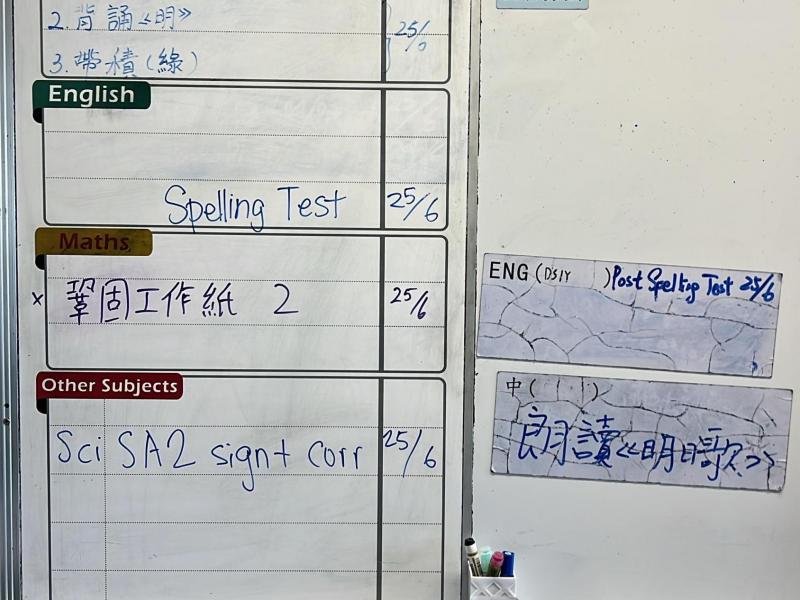 2. 背誦《明》
25/6
3. 帶積(綠)
English
Spelling Test 25/6
Maths
x 鞏固工作紙 2 25/6
Other Subjects
Sci SA2 sign+ corr 25/6
ENG (DSIY ) Post Spelling Test 25/6
中( )
朗讀《明日歌》